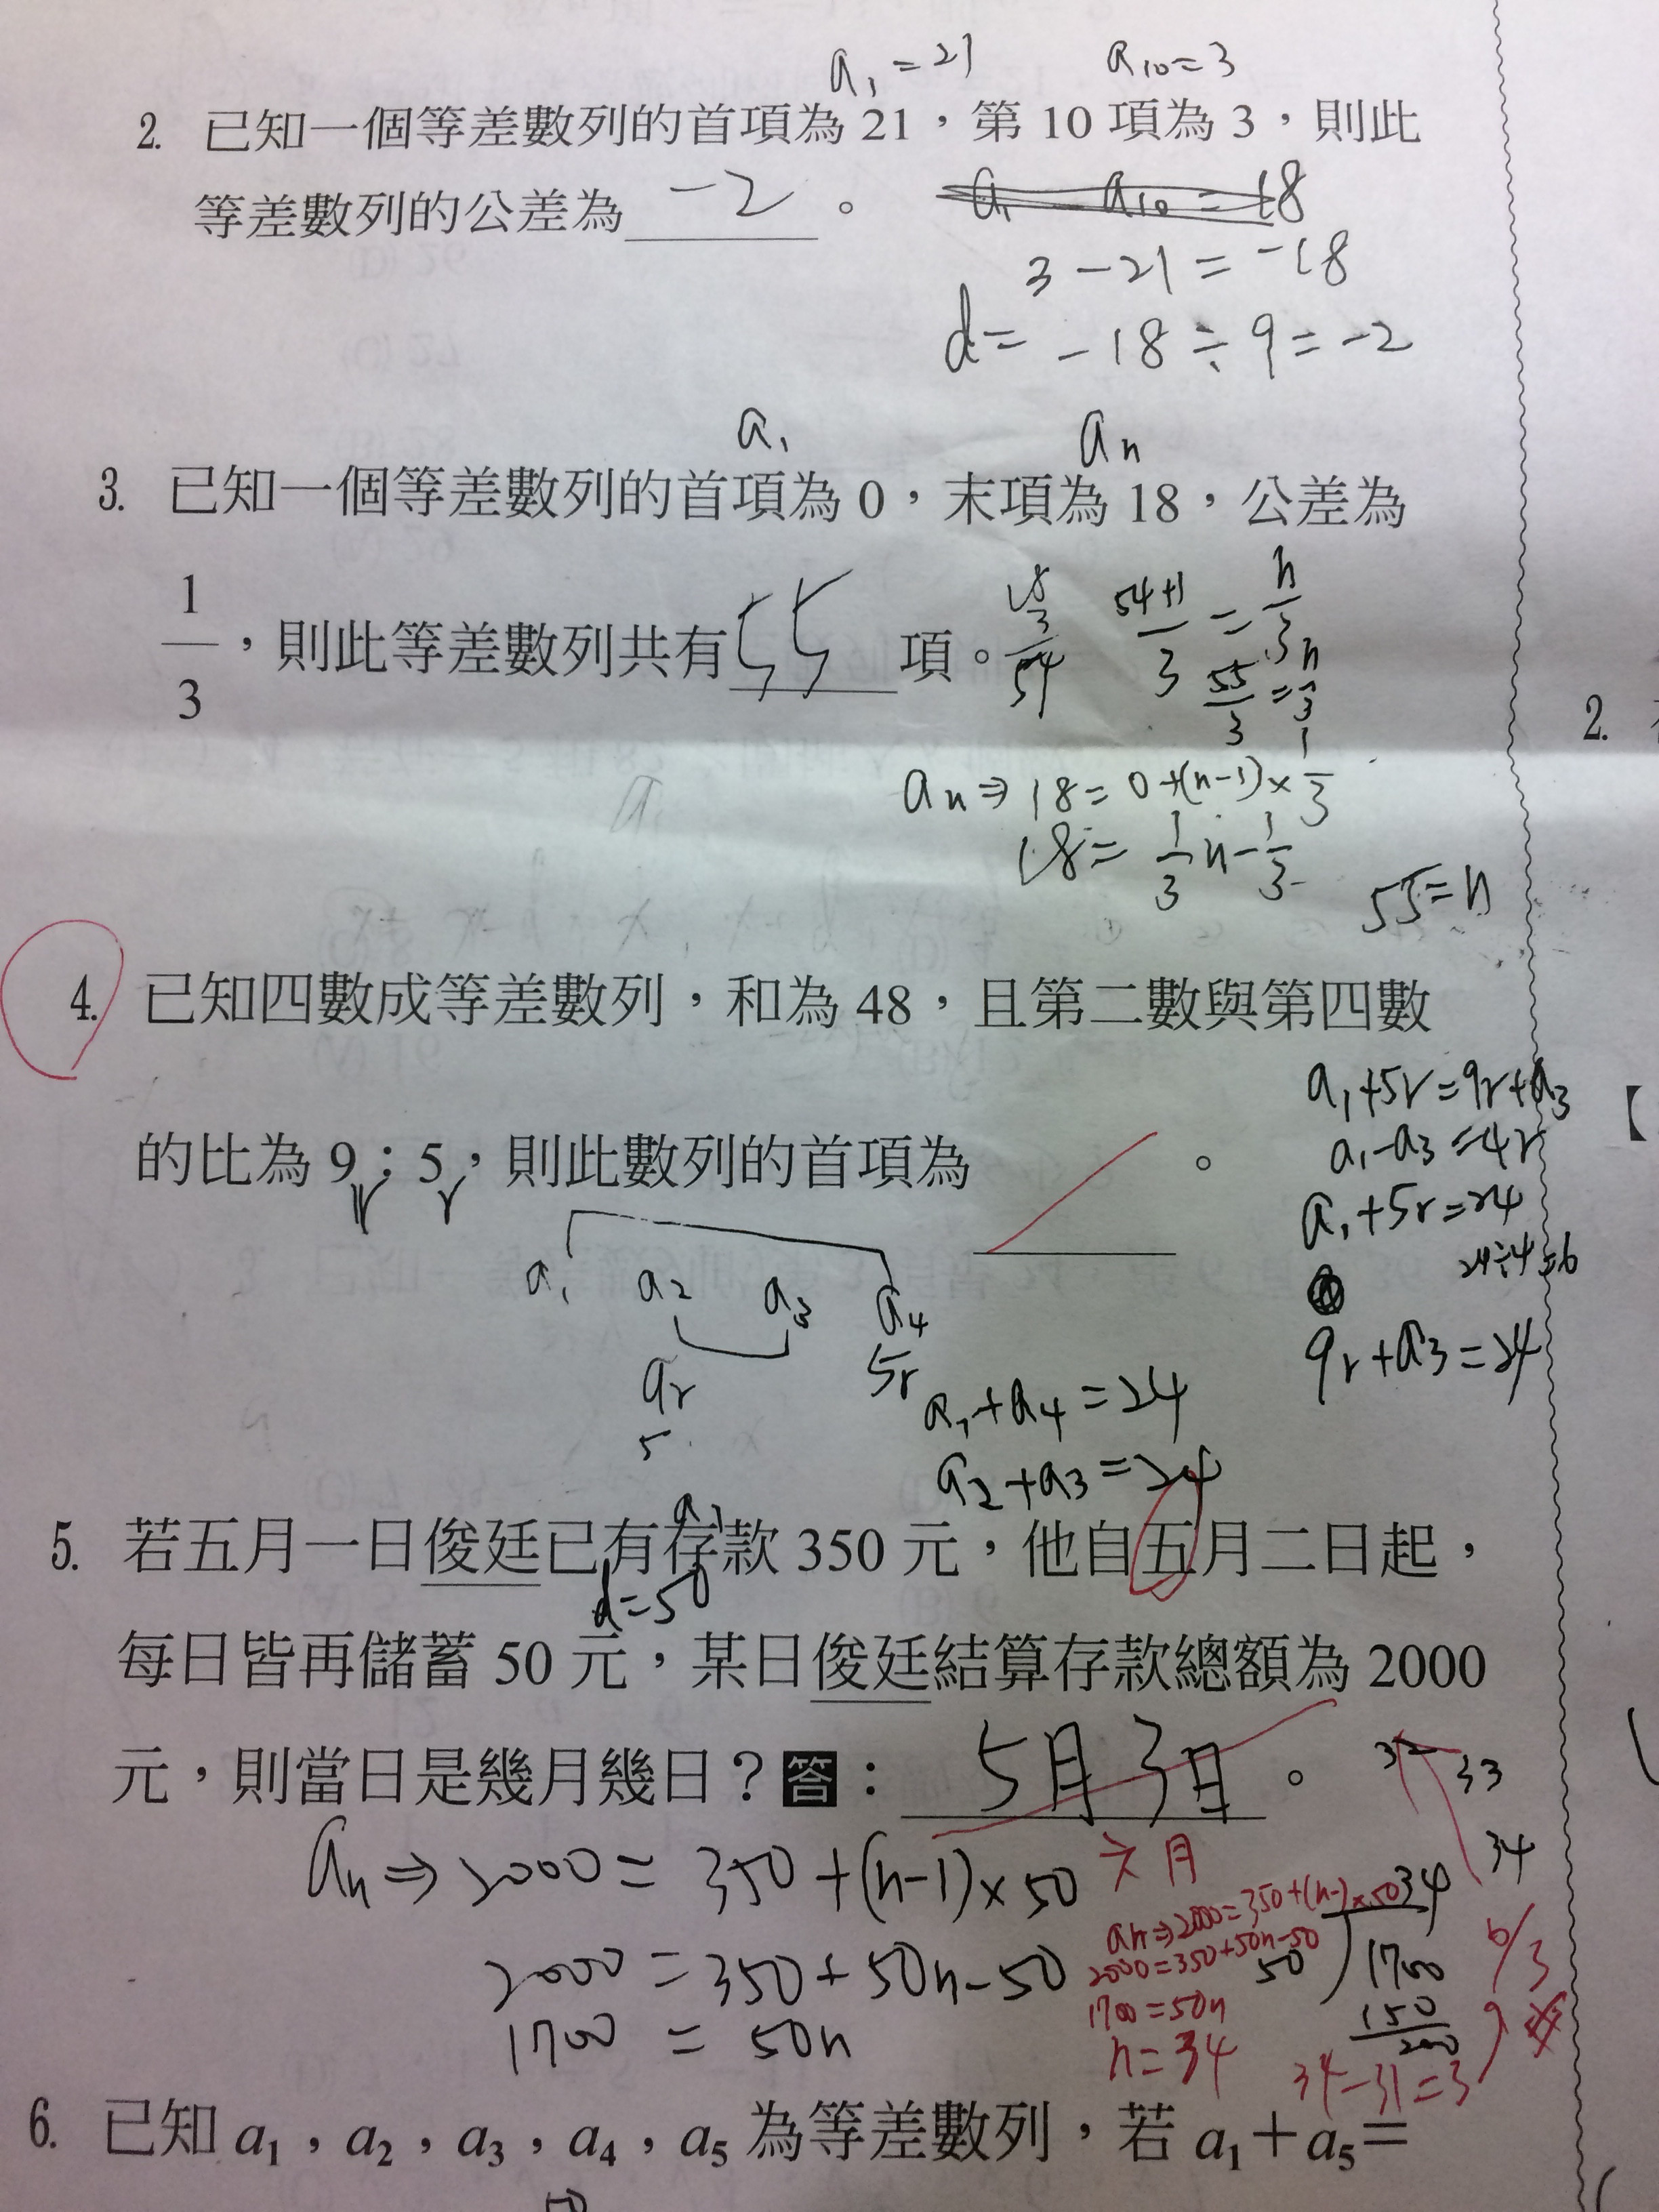 a₁ = 21 a₁₀ = 3
2. 已知一個等差數列的首項為 21，第 10 項為 3，則此
等差數列的公差為 -2 。
a₁ a₁₀ = 18
3 - 21 = -18
d = -18 ÷ 9 = -2
a₁ aₙ
3. 已知一個等差數列的首項為 0，末項為 18，公差為
1/3，則此等差數列共有 55 項。
18
3
54
54+1/3 = n/3
55/3 = n/3
aₙ ⇒ 18 = 0 + (n-1) × 1/3
18 = 1/3 n - 1/3
55 = n
4. 已知四數成等差數列，和為 48，且第二數與第四數
的比為 9：5，則此數列的首項為 。
r r
a₁+5r=9r+a₃
a₁-a₃=4r
a₁+5r=24
24÷4=6
9r+a₃=24
a₁ a₂ a₃ a₄
9r 5r
5
a₁+a₄=24
a₂+a₃=24
a₁
5. 若五月一日俊廷已有存款 350 元，他自五月二日起，
d=50
每日皆再儲蓄 50 元，某日俊廷結算存款總額為 2000
元，則當日是幾月幾日？答： 5月3日 。
33
34
六月
aₙ ⇒ 2000 = 350 + (n-1) × 50
2000 = 350 + 50n - 50
1700 = 50n
an⇒2000=350+(n-1)×50
2000=350+50n-50
1700=50n
n=34
34
50 1700
150
200
6/3
34-31=3
6. 已知 a₁，a₂，a₃，a₄，a₅ 為等差數列，若 a₁＋a₅＝
2.
【